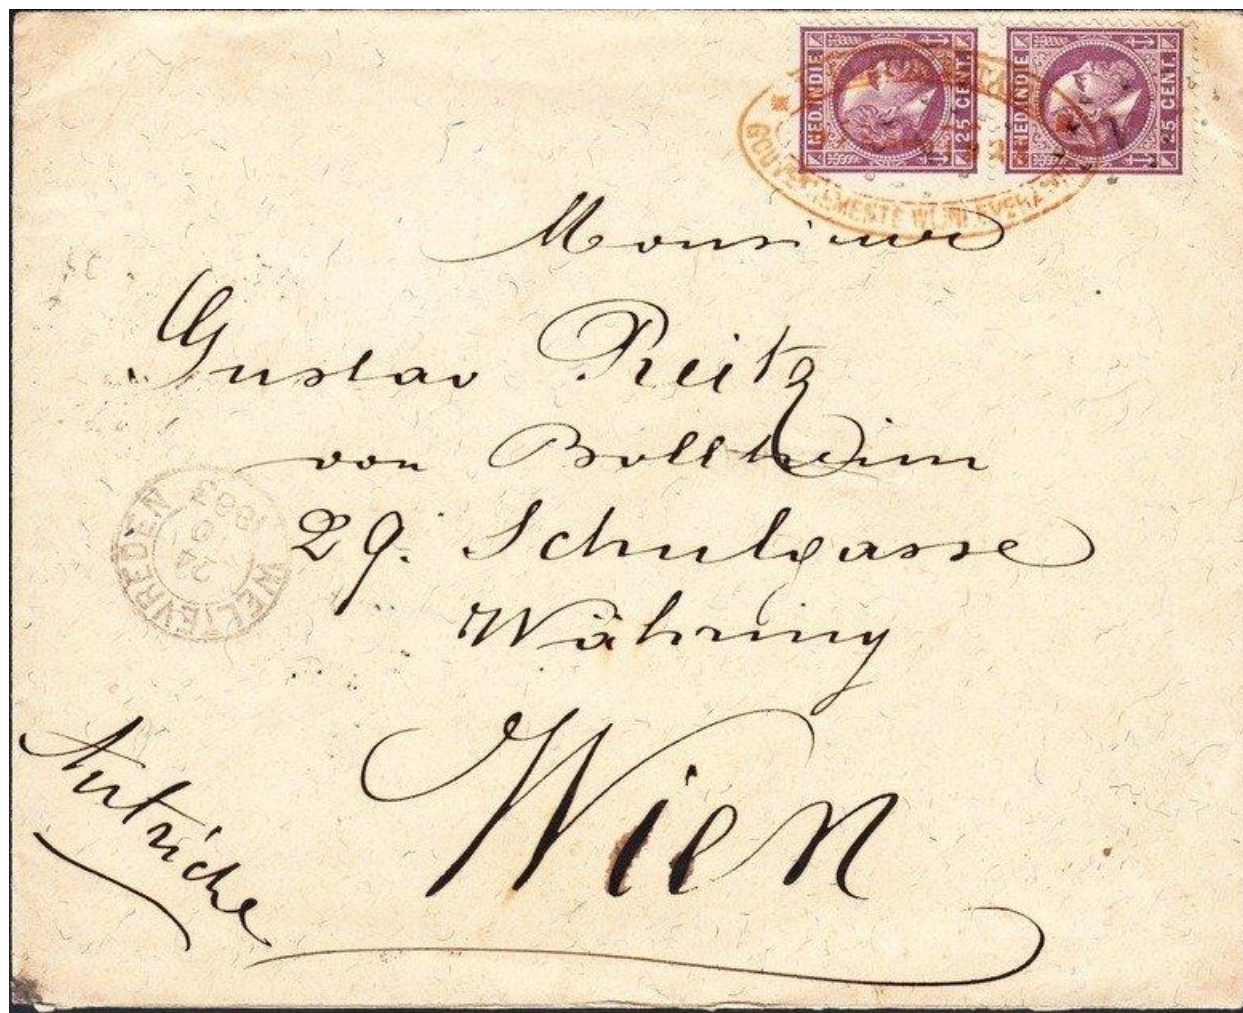 NED.INDIE 25 CENT.
NED.INDIE 25 CENT.
Monsieur
Gustav Reitz
von Bollheim
29. Schulgasse
Währing
Wien
Autriche
WELTEVREDEN
24
6
1883